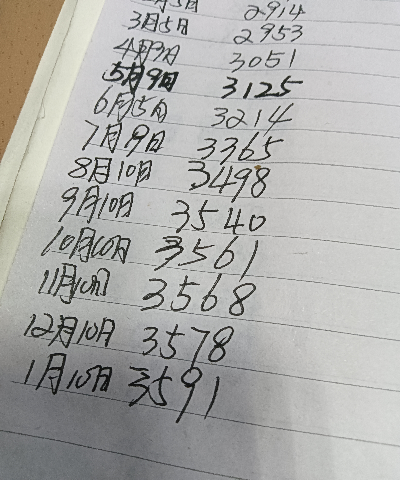 月5日 2914
3月5日 2953
4月9日 3051
5月9日 3125
6月5日 3214
7月9日 3365
8月10日 3498
9月10日 3540
10月10日 3561
11月10日 3568
12月10日 3578
1月10日 3591